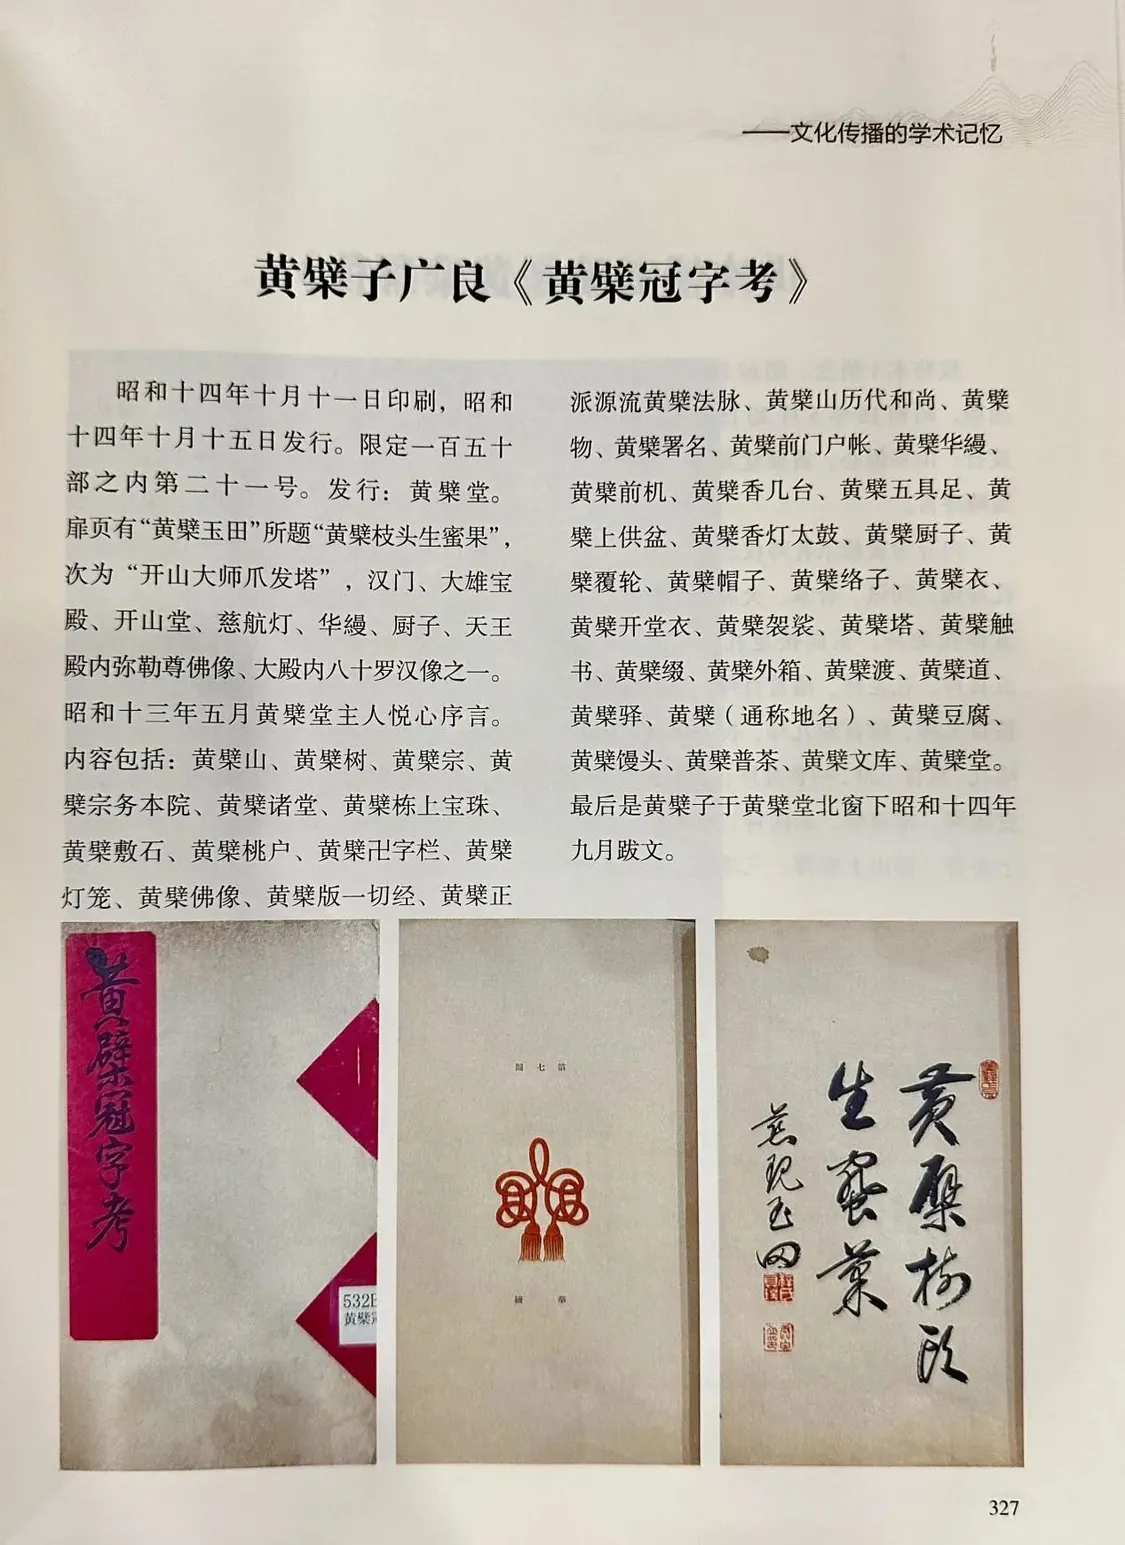 ——文化传播的学术记忆
黄檗子广良《黄檗冠字考》
昭和十四年十月十一日印刷，昭和
十四年十月十五日发行。限定一百五十
部之内第二十一号。发行：黄檗堂。
扉页有“黄檗玉田”所题“黄檗枝头生蜜果”，
次为“开山大师爪发塔”，汉门、大雄宝
殿、开山堂、慈航灯、华縵、厨子、天王
殿内弥勒尊佛像、大殿内八十罗汉像之一。
昭和十三年五月黄檗堂主人悦心序言。
内容包括：黄檗山、黄檗树、黄檗宗、黄
檗宗务本院、黄檗诸堂、黄檗栋上宝珠、
黄檗敷石、黄檗桃户、黄檗卍字栏、黄檗
灯笼、黄檗佛像、黄檗版一切经、黄檗正
派源流黄檗法脉、黄檗山历代和尚、黄檗
物、黄檗署名、黄檗前门户帐、黄檗华縵、
黄檗前机、黄檗香几台、黄檗五具足、黄
檗上供盆、黄檗香灯太鼓、黄檗厨子、黄
檗覆轮、黄檗帽子、黄檗络子、黄檗衣、
黄檗开堂衣、黄檗袈裟、黄檗塔、黄檗触
书、黄檗缀、黄檗外箱、黄檗渡、黄檗道、
黄檗驿、黄檗（通称地名）、黄檗豆腐、
黄檗馒头、黄檗普茶、黄檗文库、黄檗堂。
最后是黄檗子于黄檗堂北窗下昭和十四年
九月跋文。
黄檗冠字考
532E
黄檗冠
第七圖
華縵
黄檗樹頭
生蜜菓
黄檗玉田
327